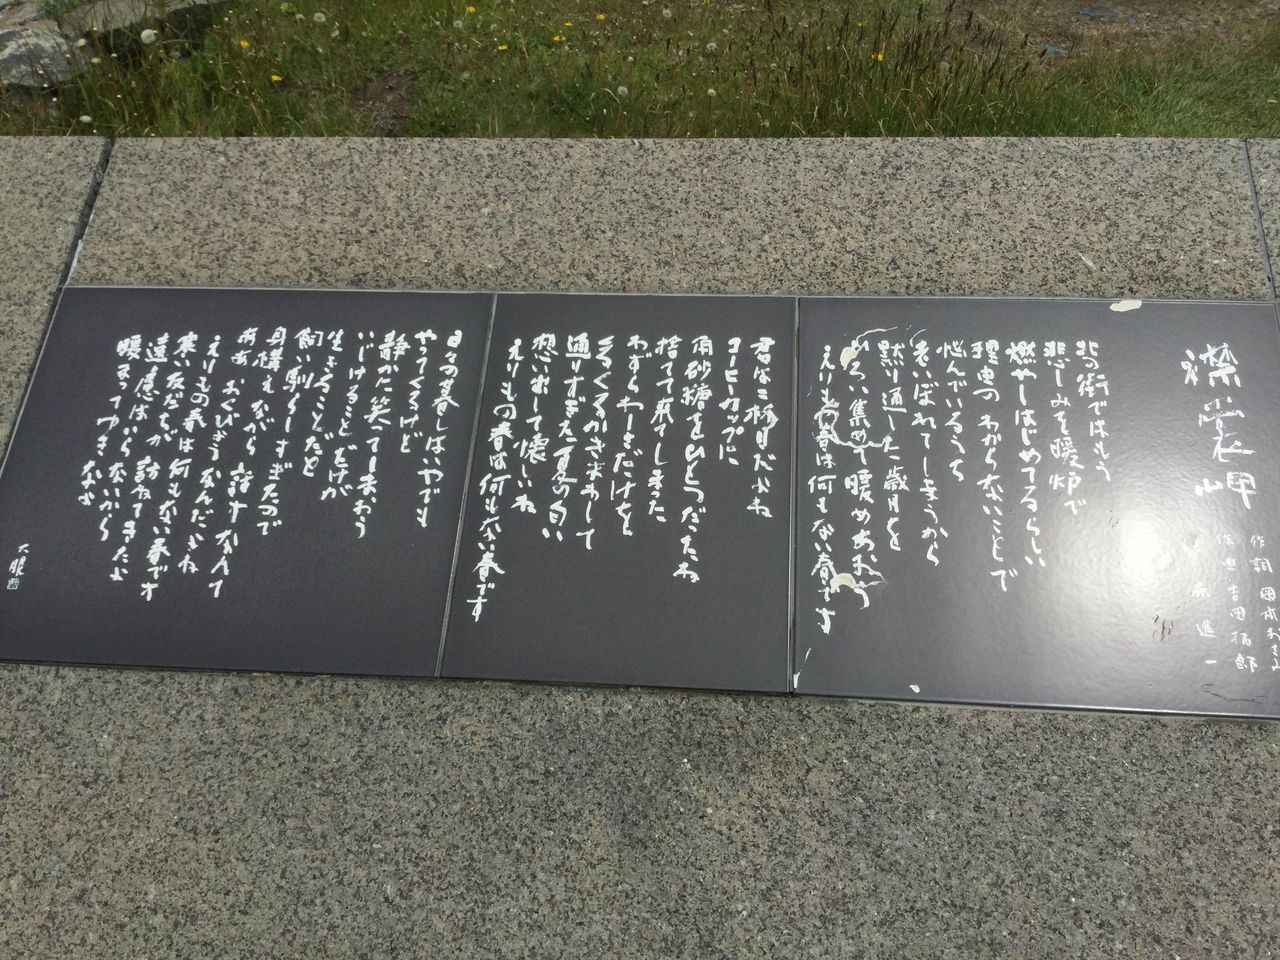 襟裳岬
作詞 岡本おさみ
作曲 吉田拓郎
森進一
北の街ではもう
悲しみを暖炉で
燃やしはじめてるらしい
理由のわからないことで
悩んでいるうち
老いぼれてしまうから
黙り通した歳月を
ひろい集めて暖めあおう
えりもの春は何もない春です
君は二杯目だよね
コーヒーカップに
角砂糖をひとつだったね
捨てて来てしまった
わずらわしさだけを
くるくるかきまわして
通りすぎた夏の匂い
想い出して懐しいね
えりもの春は何もない春です
日々の暮しはいやでも
やってくるけど
静かに笑ってしまおう
いじけることだけが
生きることだと
飼い馴らしすぎたので
身構えながら 話すなんて
ああ おくびょうなんだよね
えりもの春は何もない春です
寒い友だちが 訪ねてきたよ
遠慮はいらないから
暖まってゆきなよ